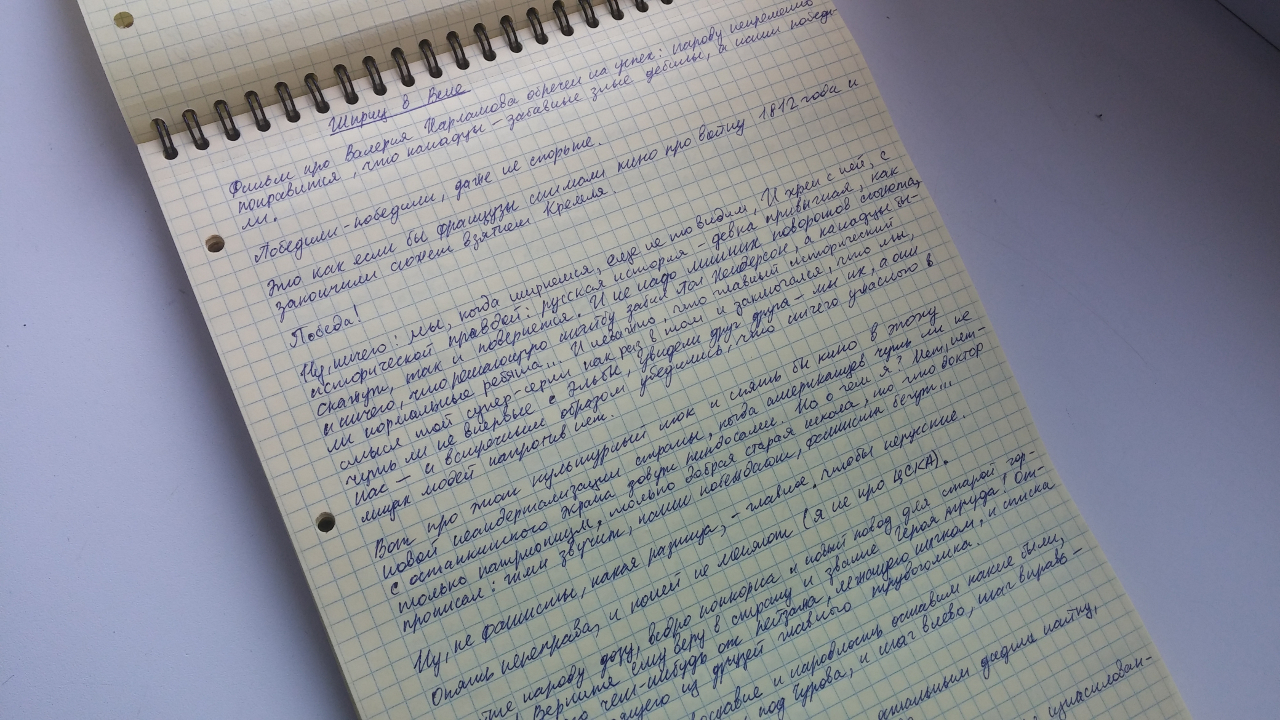 Шприц в вене
Фильм про Валерия Харламова обречен на успех: народу непременно
понравится, что канадцы – забавные злые дебилы, а наши победи-
ли.
Победили – победили, даже не спорьте.
Это как если бы французы снимали кино про войну 1812 года и
закончили сюжет взятием Кремля.
Победа!
Ну, ничего: мы, когда ширнемся, еще не то видим. И хрен с ней, с
исторической правдой: русская история – девка привычная, как
скажут, так и повернется. И не надо лишних поворотов сюжета,
и ничего, что решающую шайбу забил Пол Хендерсон, а канадцы бы-
ли нормальные ребята... И неважно, что главный исторический
смысл той супер-серии как раз в том и заключался, что мы,
чуть ли не впервые с Эльбы, увидели друг друга – мы их, а они
нас – и встречным образом убедились, что ничего ужасного в
лицах людей напротив нет.
Вот про этот культурный шок и снять бы кино в эпоху
новой неандертализации страны, когда американцев чуть ли не
с останкинского экрана зовут пиндосами. Но о чем я? Нет, нет –
только патриотизм, только добрая старая школа, то что доктор
прописал: гимн звучит, наши побеждают, фашисты бегут...
Ну, не фашисты, какая разница, – главное, чтобы нерусские.
Опять переправа, и коней не меняют (я не про ЦСКА).
народу дозу, ведро попкорна и новый повод для старой гор-
Верните ему веру в страну и звание Героя труда! От-
чем-нибудь от пейзажа, лежащего пластом, и списка
из друзей главного трудоголика.
и народность оставим какие были,
под Гурова, и шаг влево, шаг вправо –
остальным дадим пайку,